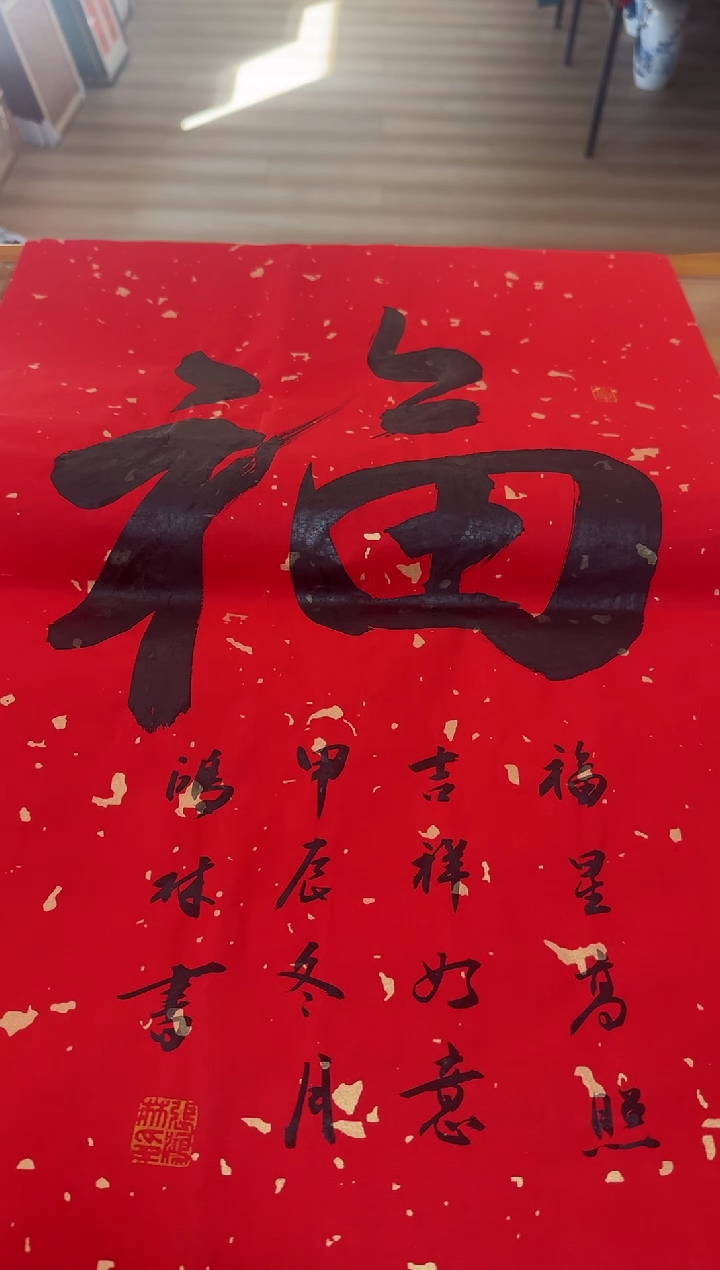 福
福星高照
吉祥如意
甲辰冬月
鸿林书